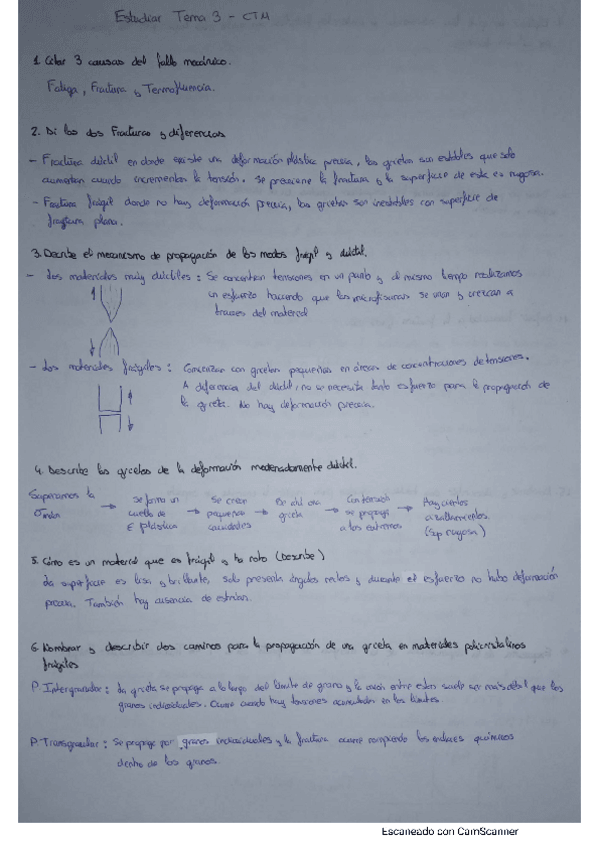 Estudiar Tema 3 - CTM
1. Citar 3 causas del fallo mecánico.
Fatiga, Fractura y Termofluencia.
2. Di las dos Fracturas y diferencias
- Fractura dúctil en donde existe una deformación plástica previa, las grietas son estables que solo
aumentan cuando incrementas la tensión. Se presencia la fractura y la superficie de este es rugosa.
- Fractura frágil donde no hay deformación previa, las grietas son inestables con superficie de
fractura plana.
3. Describe el mecanismo de propagación de los modos frágil y dúctil.
- Los materiales muy dúctiles : Se concentran tensiones en un punto y al mismo tiempo realizamos
un esfuerzo haciendo que las microfisuras se unan y crezcan a
traves del material
- Los materiales frágiles : Comienzan con grietas pequeñas en áreas de concentraciones de tensiones.
A diferencia del dúctil, no se necesita tanto esfuerzo para la propagación de
la grieta. No hay deformación previa.
4. Describe las grietas de la deformación moderadamente dúctil.
Superamos la → se forma un → Se crean → Se ahí una → Con tensión → Hay ciertos
cuello de pequeñas grieta se propaga
ε plástica cavidades a los extremos (sup rugosa)
5. Cómo es un material que es frágil y ha roto (Describe)
La superficie es lisa y brillante, solo presenta ángulos rectos y durante el esfuerzo no hubo deformación
previa. También hay ausencia de estrías.
6. Nombrar y describir dos caminos para la propagación de una grieta en materiales policristalinos
frágiles
P. Intergranular : La grieta se propaga a lo largo del límite de grano y la unión entre estos suele ser más débil que los
granos individuales. Ocurre cuando hay tensiones acumuladas en los límites.
P. Transgranular : Se propaga por granos individuales y la fractura ocurre rompiendo los enlaces químicos
dentro de los granos.
Escaneado con CamScanner